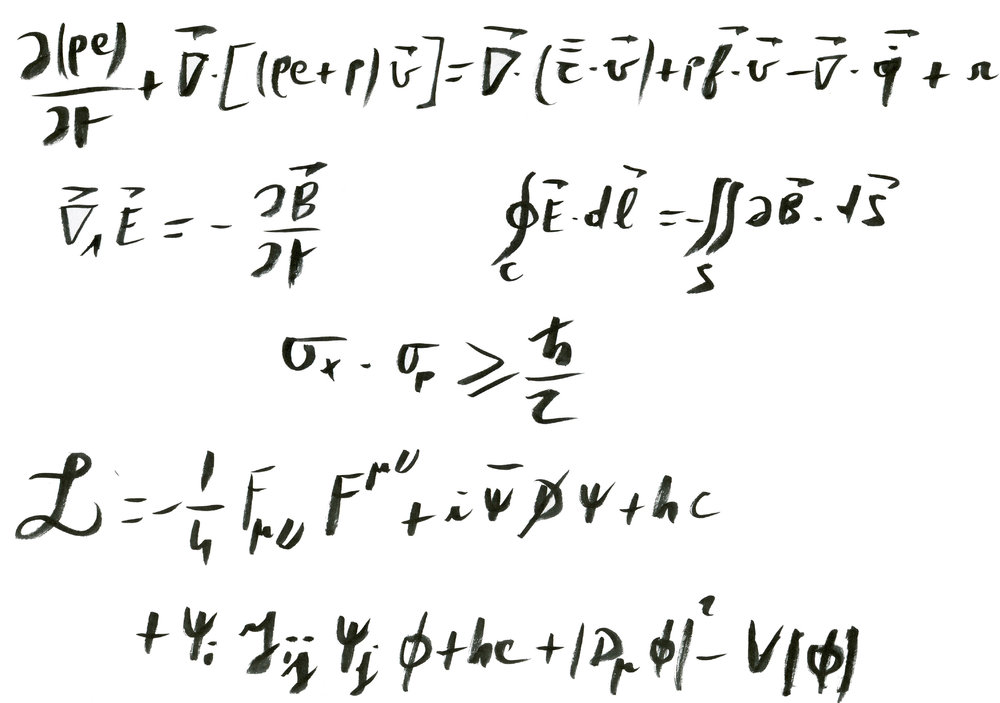 ∂(ρe)/∂t + ∇⃗·[(ρe+p)v⃗] = ∇⃗·(τ̿·v⃗) + ρf⃗·v⃗ − ∇⃗·q̇⃗ + r
∇⃗∧E⃗ = −∂B⃗/∂t    ∮_C E⃗·dl⃗ = −∬_S ∂B⃗·dS⃗
σₓ·σₚ ⩾ ℏ/2
ℒ = −1/4 F_μν F^μν + iψ̄D̸ψ + hc
+ψᵢ y_ij ψⱼ ϕ + hc + |D_μ ϕ|² − V|ϕ|